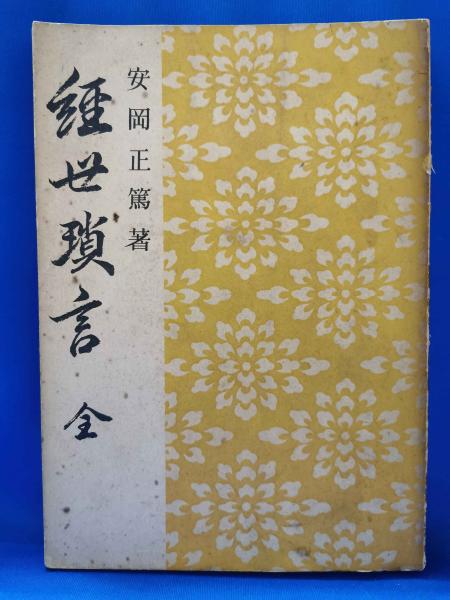 安岡正篤著
經世瑣言 全